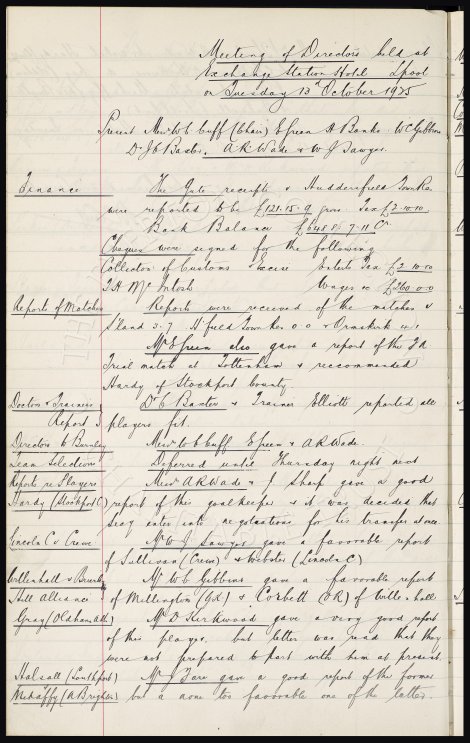 Meeting of Directors held at
Exchange Station Hotel L'pool
on Tuesday 13th October 1925
Present Messrs W C Cuff (Chair) E Green H Banks W C Gibbins
Dr J C Baxter. A R Wade & W J Sawyer.
Finance The Gate receipts v Huddersfield Town Res
were reported to be £121.15.9 gross Tax £2.10.10
Bank Balance £6488.7.11 Cr
Cheques were signed for the following
Collector of Customs & Excise Enterts Tax £2.10.10
T H McIntosh Wages ac £260.0.0
Reports of Matches Reports were received of the matches v
S'land 3-7 H'field Town Res 0-0 & Ormskirk
Mr E Green also gave a report of the FA
Trial match at Tottenham & recommended
Hardy of Stockport County
Doctor & Trainers Dr C Baxter & Trainer Elliott reported all
Report players fit.
Directors to Burnley Messrs W C Cuff E Green & A R Wade
Team Selection Deferred until Thursday night next
Reports re Players Messrs A R Wade & J Sharp gave a good
Hardy (Stockport C) report of this goalkeeper & it was decided that
Secy enter into negotiations for his transfer at once.
Lincoln C v Crewe Mr W J Sawyer gave a favorable report
of Sullivan (Crewe) & Webster (Lincoln C)
Willenhall v Burnley Mr W C Gibbins gave a favorable report
Hall Alliance of Millington (GK) & Corbett (OR) of Willenhall
Gray (Oldham Ath) Mr D Kirkwood gave a very good report
of this player, but letter was read that they
were not prepared to part with him at present.
Halsall (Southport) Mr J Fare gave a good report of the former
Mehaffy (N Brighton) but a none too favorable one of the latter.